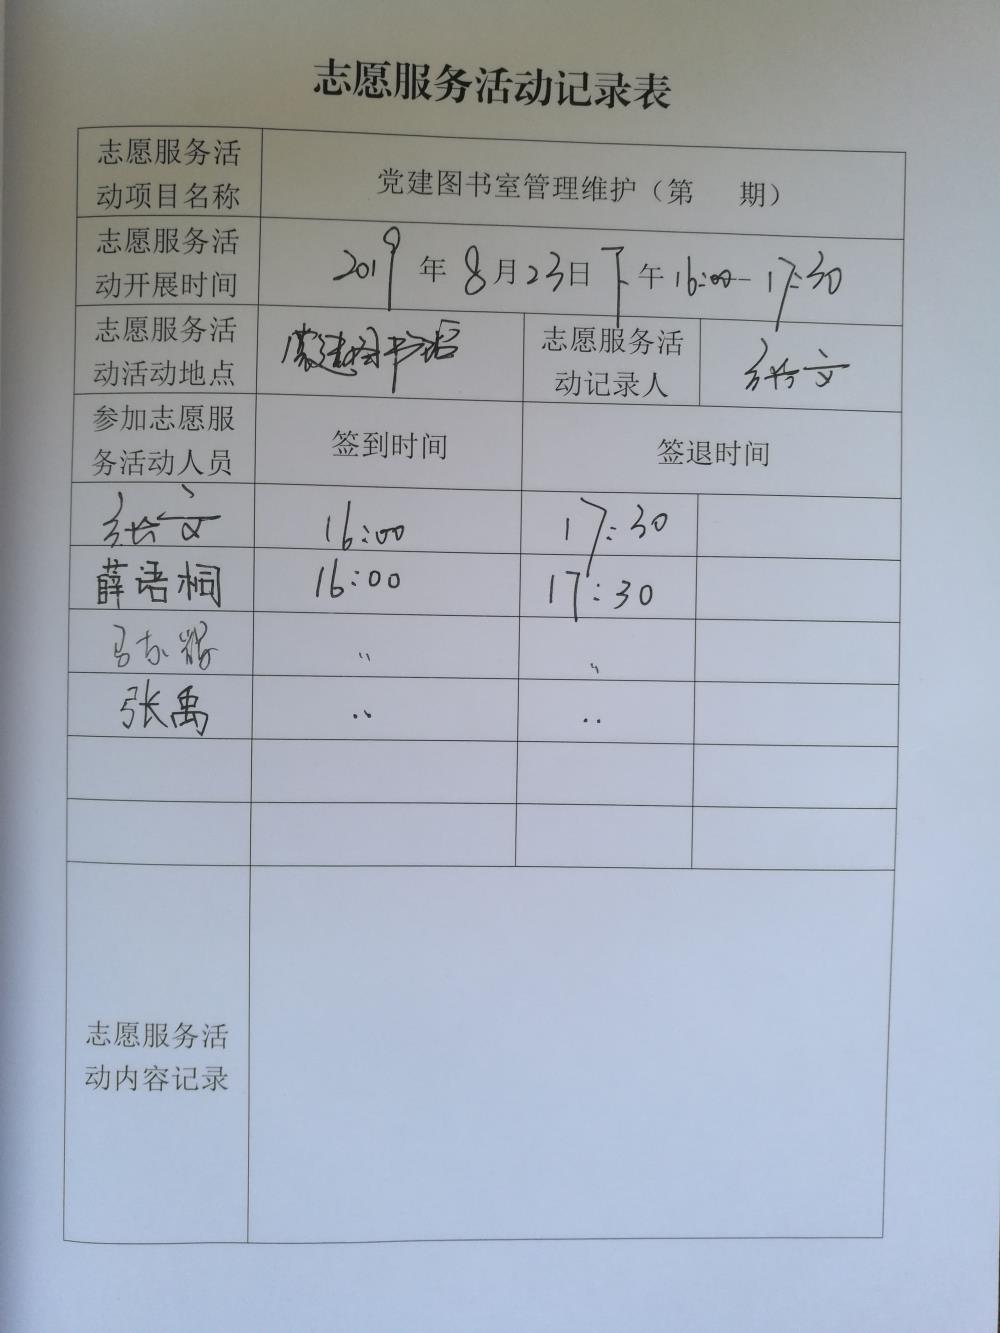 志愿服务活动记录表
志愿服务活
动项目名称
党建图书室管理维护（第 期）
志愿服务活
动开展时间
2019年8月23日下午16:00-17:30
志愿服务活
动活动地点
党建图书馆
志愿服务活
动记录人
文
参加志愿服
务活动人员
签到时间
签退时间
文
16:00
17:30
薛语桐
16:00
17:30
马
〃
〃
张禹
〃
〃
志愿服务活
动内容记录